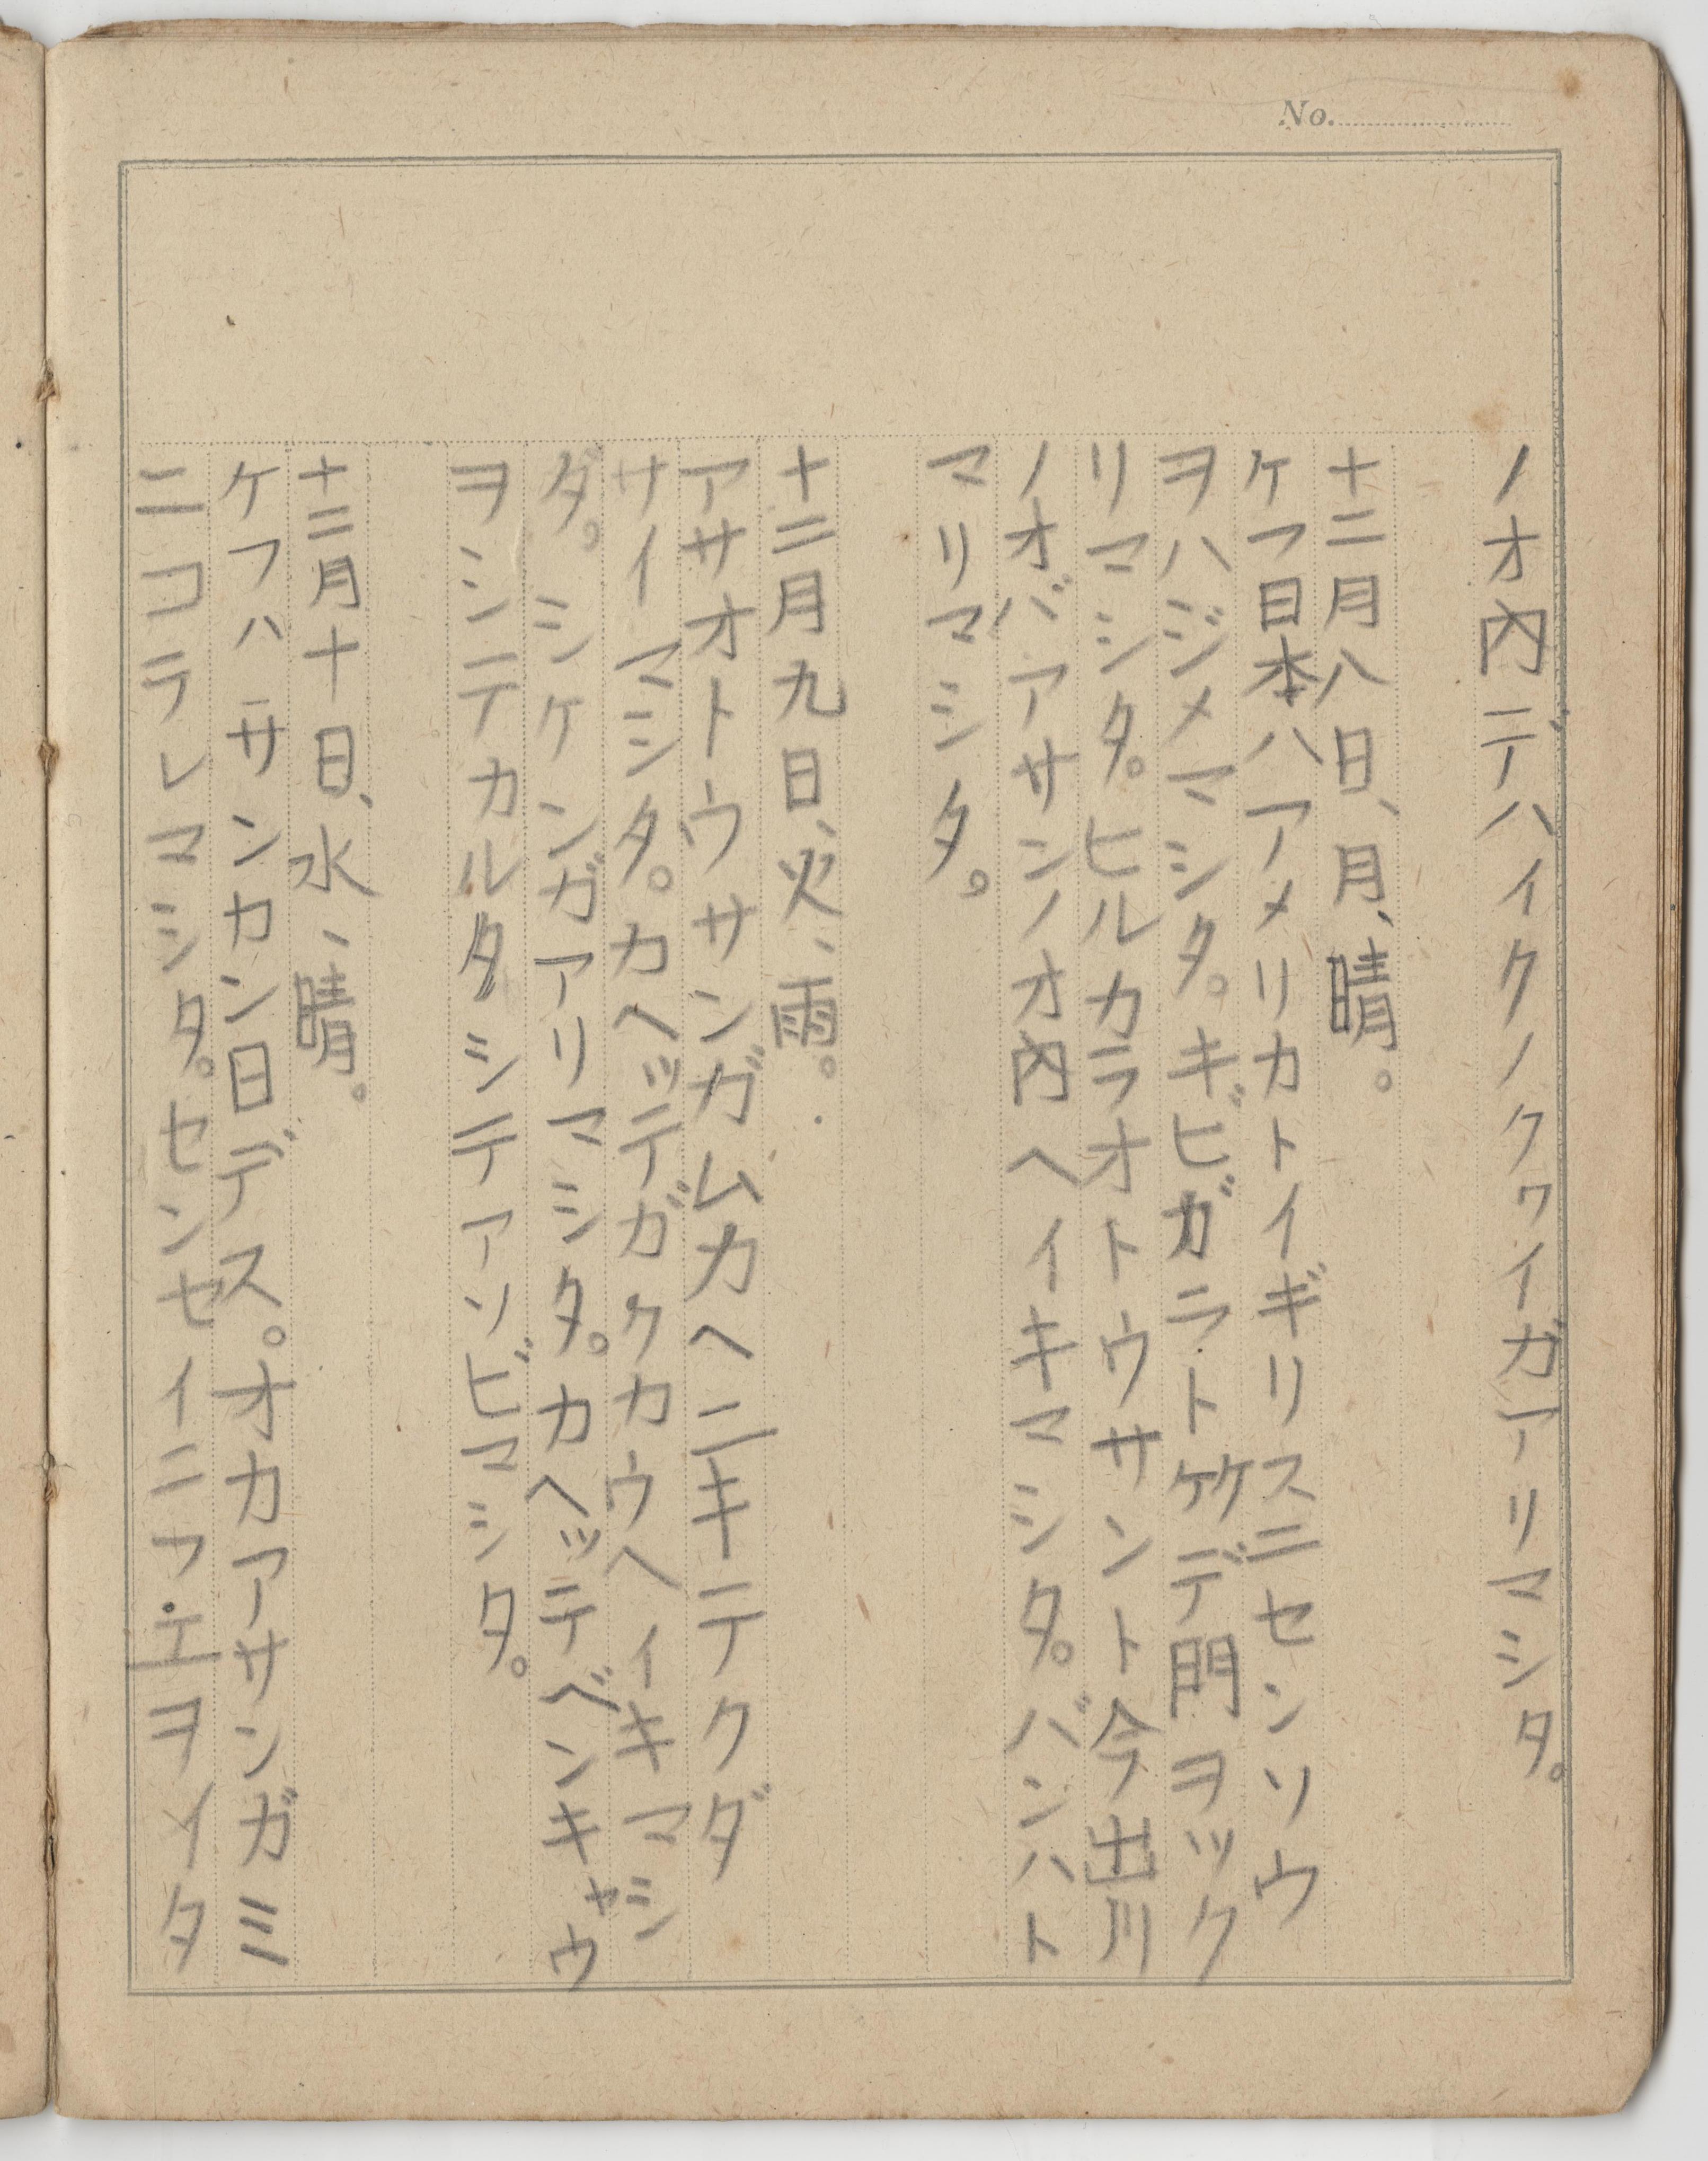 No.
ノオ内デハイクノクヮイガアリマシタ。
十二月八日、月、晴。
ケフ日本ハアメリカトイギリスニセンソウ
ヲハジメマシタ。キビガラトケケデ門ヲツク
リマシタ。ヒルカラオトウサント今出川
ノオバアサンノオ内ヘイキマシタ。バンハト
マリマシタ。
十二月九日、火、雨。
アサオトウサンガムカヘニキテクダ
サイマシタ。カヘッテガクカウヘイキマシ
ダ。シケンガアリマシタ。カヘッテベンキャウ
ヲシテカルタシテアソビマシタ。
十二月十日、水、晴。
ケフハサンカン日デス。オカアサンガミ
ニコラレマシタ。センセイニフエヲイタ